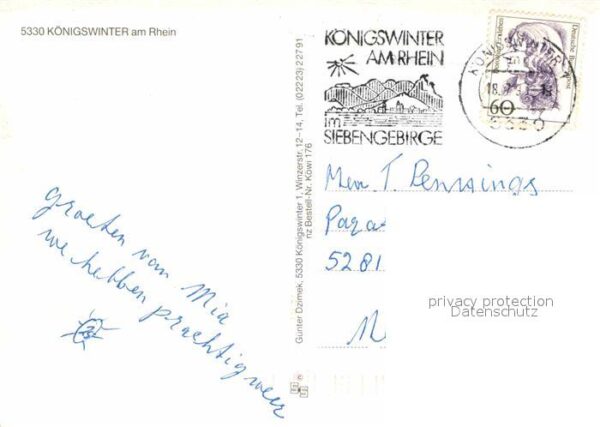 5330 KÖNIGSWINTER am Rhein
groeten van Mia
we hebben prachtig weer
Günter Dzimek, 5330 Königswinter 1, Winzerstr. 12-14, Tel. (02223) 22791
nz Bestell-Nr. Köwi 176
KÖNIGSWINTER
AM RHEIN
im
SIEBENGEBIRGE
KÖNIGSWINTER 1
5330
60
Mevr. T. Pennings
Para
5281
privacy protection
Datenschutz